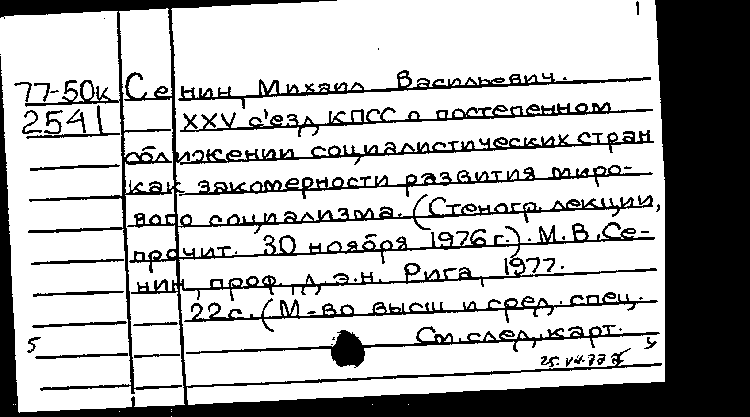 1
77-50к Сенин, Михаил Васильевич.
2541 XXV с'езд КПСС о постепенном
сближении социалистических стран
как закомерности развития миро-
вого социализма. (Стеногр. лекции,
прочит. 30 ноября 1976 г.). М.В. Се-
нин, проф. д.э.н. Рига, 1977.
22с. (М-во высш и сред. спец.
5 См. след. карт.